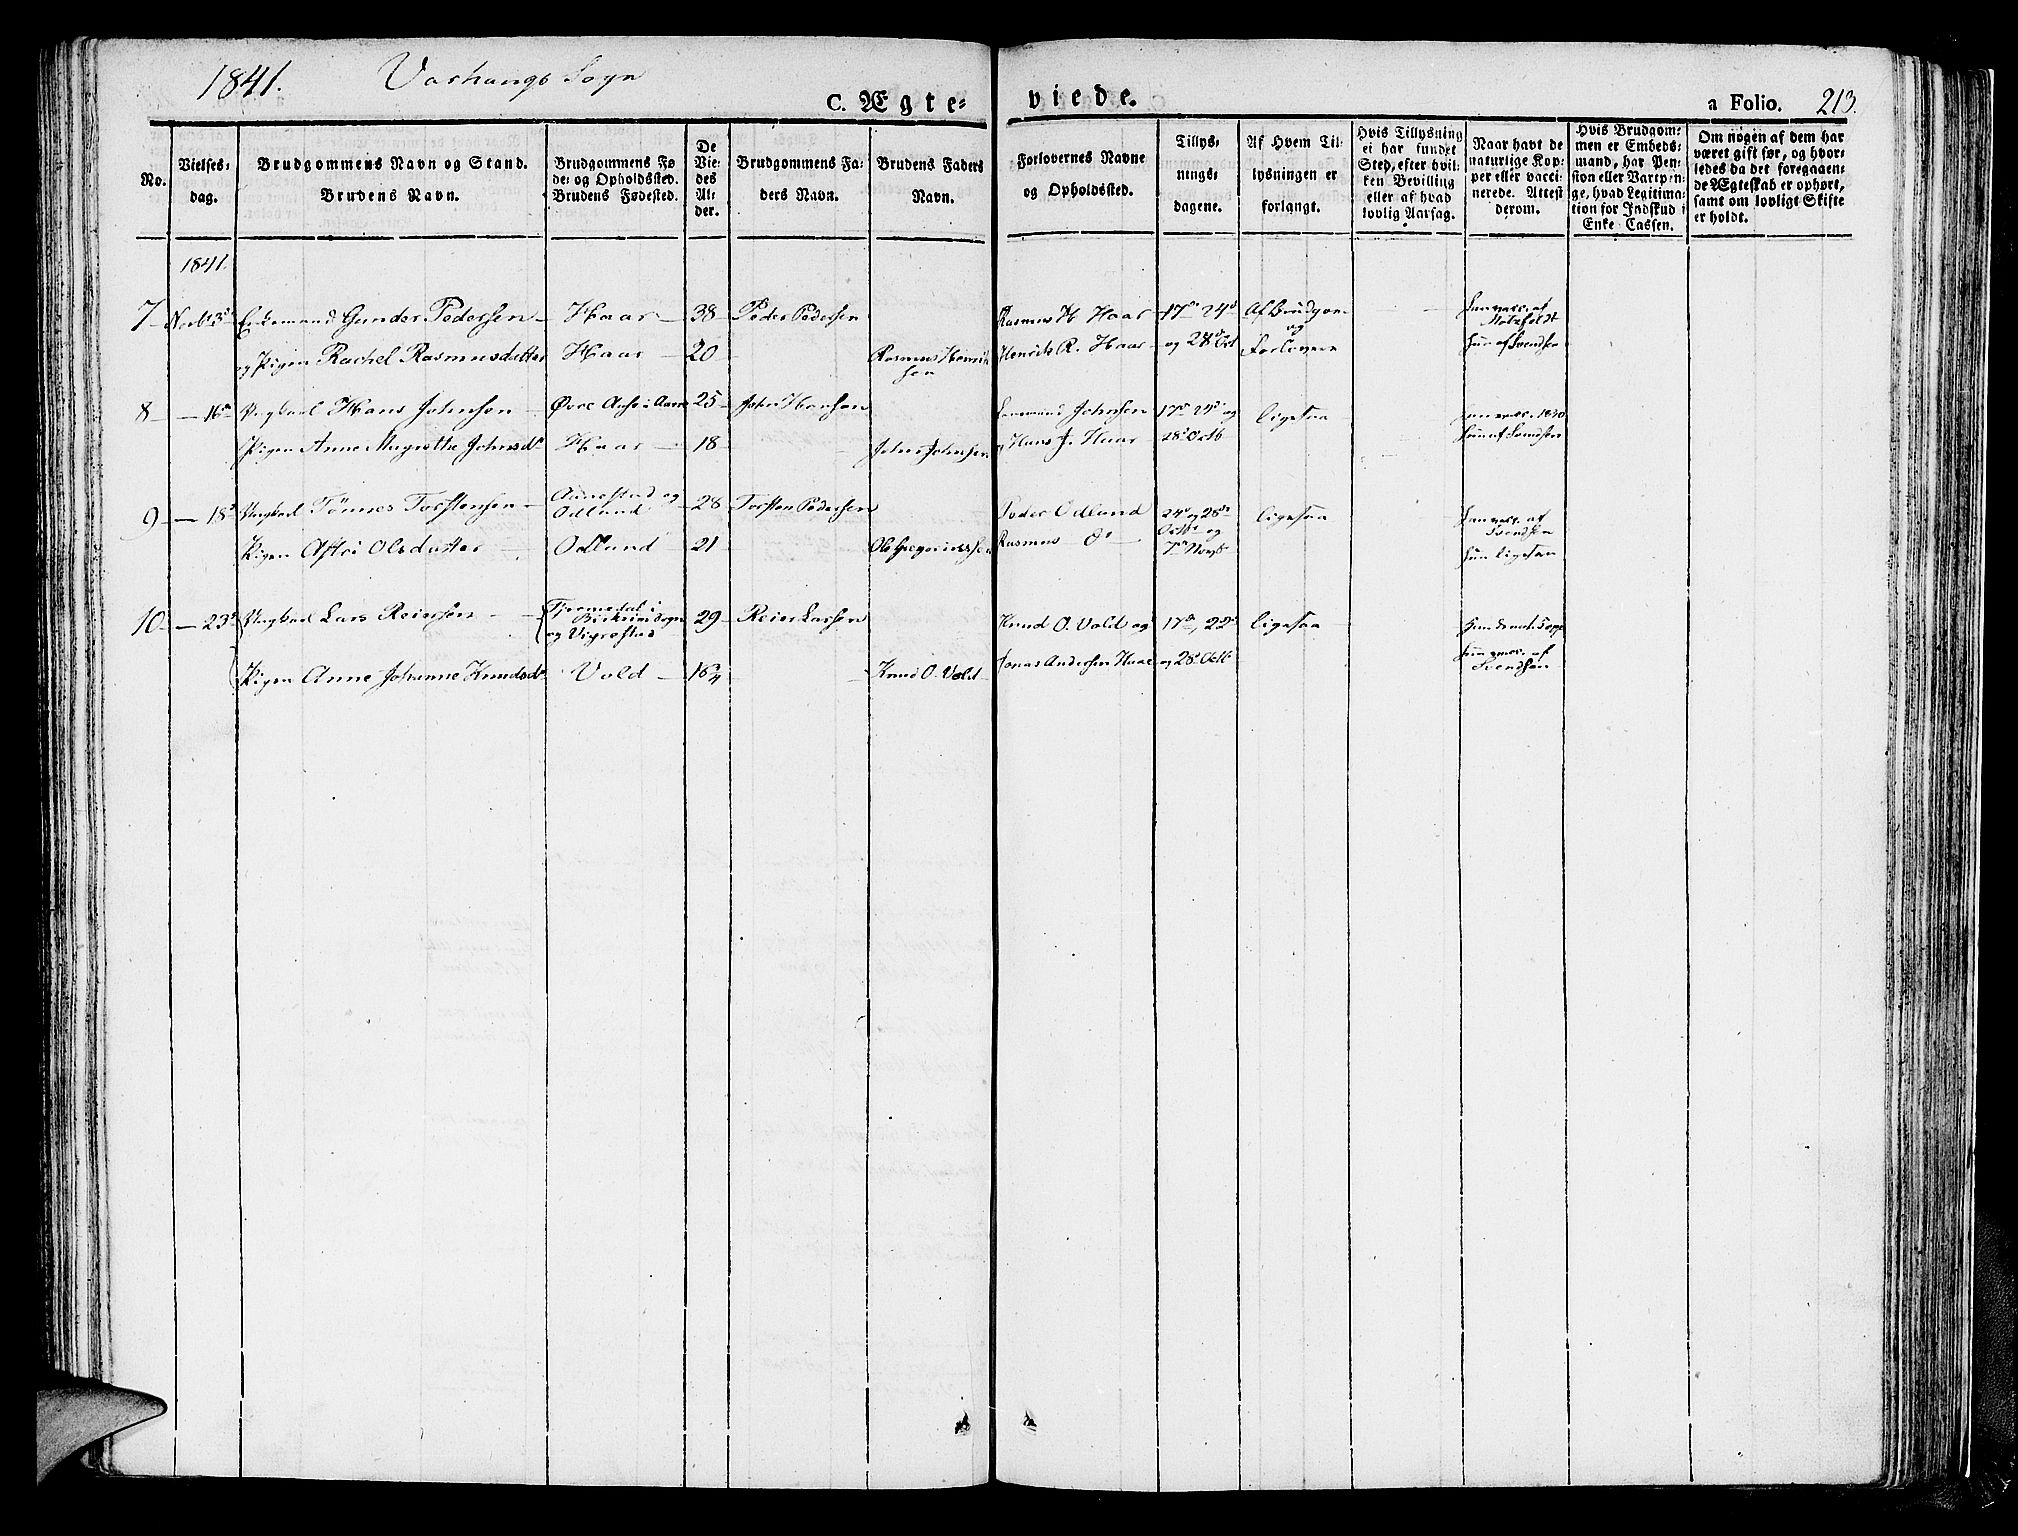 1841. Varhaugs Sogn
C. Ægte- viede. a Folio. 213.
No.
Vielses-
dag.
Brudgommens Navn og Stand.
Brudens Navn.
Brudgommens Fø
de- og Opholdssted.
Brudens Fødested.
De
Vie-
des
Al-
der.
Brudgommens Fa-
ders Navn.
Brudens Faders
Navn.
Forlovernes Navne
og Opholdssted.
Tillys-
nings-
dagene.
Af Hvem Til-
lysningen er
forlangt.
Hvis Tillysning
ei har fundet
Sted, efter hvil-
ken Bevilling
eller af hvad
lovlig Aarsag.
Naar havt de
naturlige Kop-
per eller vacci-
nerede. Attest
derom.
Hvis Brudgom-
men er Embeds-
mand, har Pen-
sion eller Vartpen-
ge, hvad Legitima-
tion for Indskud i
Enke Cassen.
Om nogen af dem har
været gift før, og hvor-
ledes da det foregaaen-
de Ægteskab er ophørt,
samt om lovligt Skifte
er holdt.
1841.
7 Novb 3d Enkemand Gunder Pedersen Haar 38 Peder Pedersen Rasmus H. Haar 17de 24d Af Brudgom
og
og Pigen Rachel Rasmusdatter Haar 20 Rasmus Henrik
sen Henrik R. Haar og 28d Oct Forlovere hun af Svendsen
8 16de Ungkarl Hans Johnsen Øvre 25 John Hansen Johnsen 17de 24d og ligesaa vacc. 1810
Pigen Anne Magrethe Johnsd. Haar 18 John Johnsen og Hans J. Haar 28d Octb hun af Svendsen
9 18d Ungkarl Tønnes Torstensen Aanestad og
Odland 28 Torsten Pedersen Peder Odland 24d og 28de
Octb og
7de Novb ligesaa vacc. af
Svendsen
Pigen Astri Olsdatter Odland 21 Ole Gregoriussen Rasmus do hun ligesaa
10 23d Ungkarl Lars Reiersen i
Birkrims Sogn
og Vigrestad 29 Reier Larsen Knud O. Vold og 17de, 22d ligesaa
Pigen Anne Johanne Knudsd. Vold 16¾ Knud O. Vold Jonas Andersen Haar og 28d Octb hun vacc. af
Svendsen